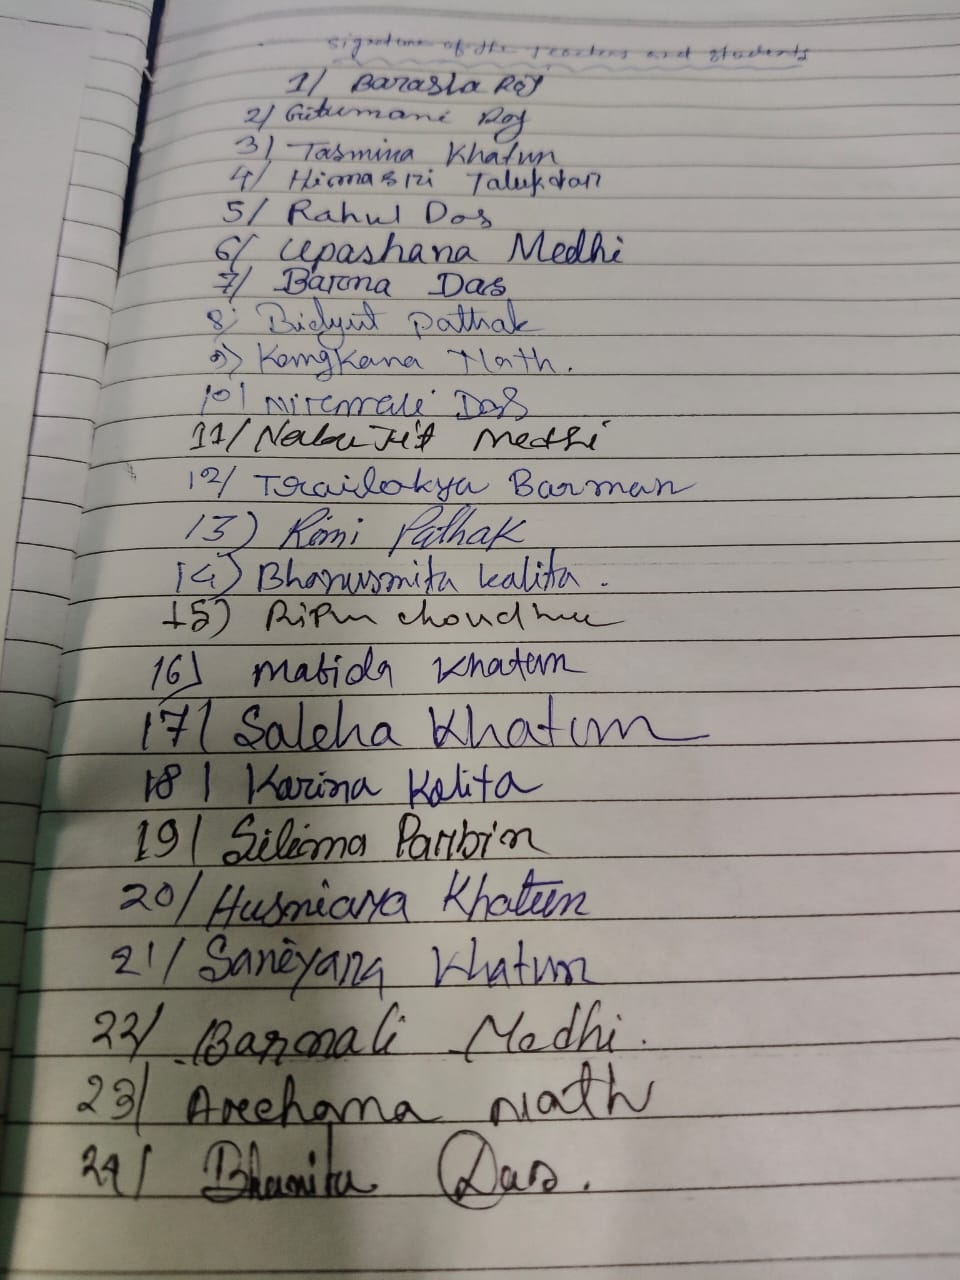 Signature of the Teachers and Students
1/ Barasha Roy
2/ Gitumani Roy
3) Tasmina Khatun
4/ Himasri Talukdar
5/ Rahul Das
6/ Upashana Medhi
7/ Barna Das
8) Bidyut pathak
9) Kongkana Nath.
10/ Nirmali Das
11/ Nabajit Medhi
12/ Trailokya Barman
13) Rimi Pathak
14) Bhanusmita kalita.
15) Ripun choudhury
16) Mabida Khatun
17/ Saleha Khatun
18/ Karina Kalita
19/ Silima Parbin
20/ Husniara Khatun
21/ Saneyara Khatun
22/ Barnali Medhi.
23/ Archana Nath
24/ Bhanita Das.